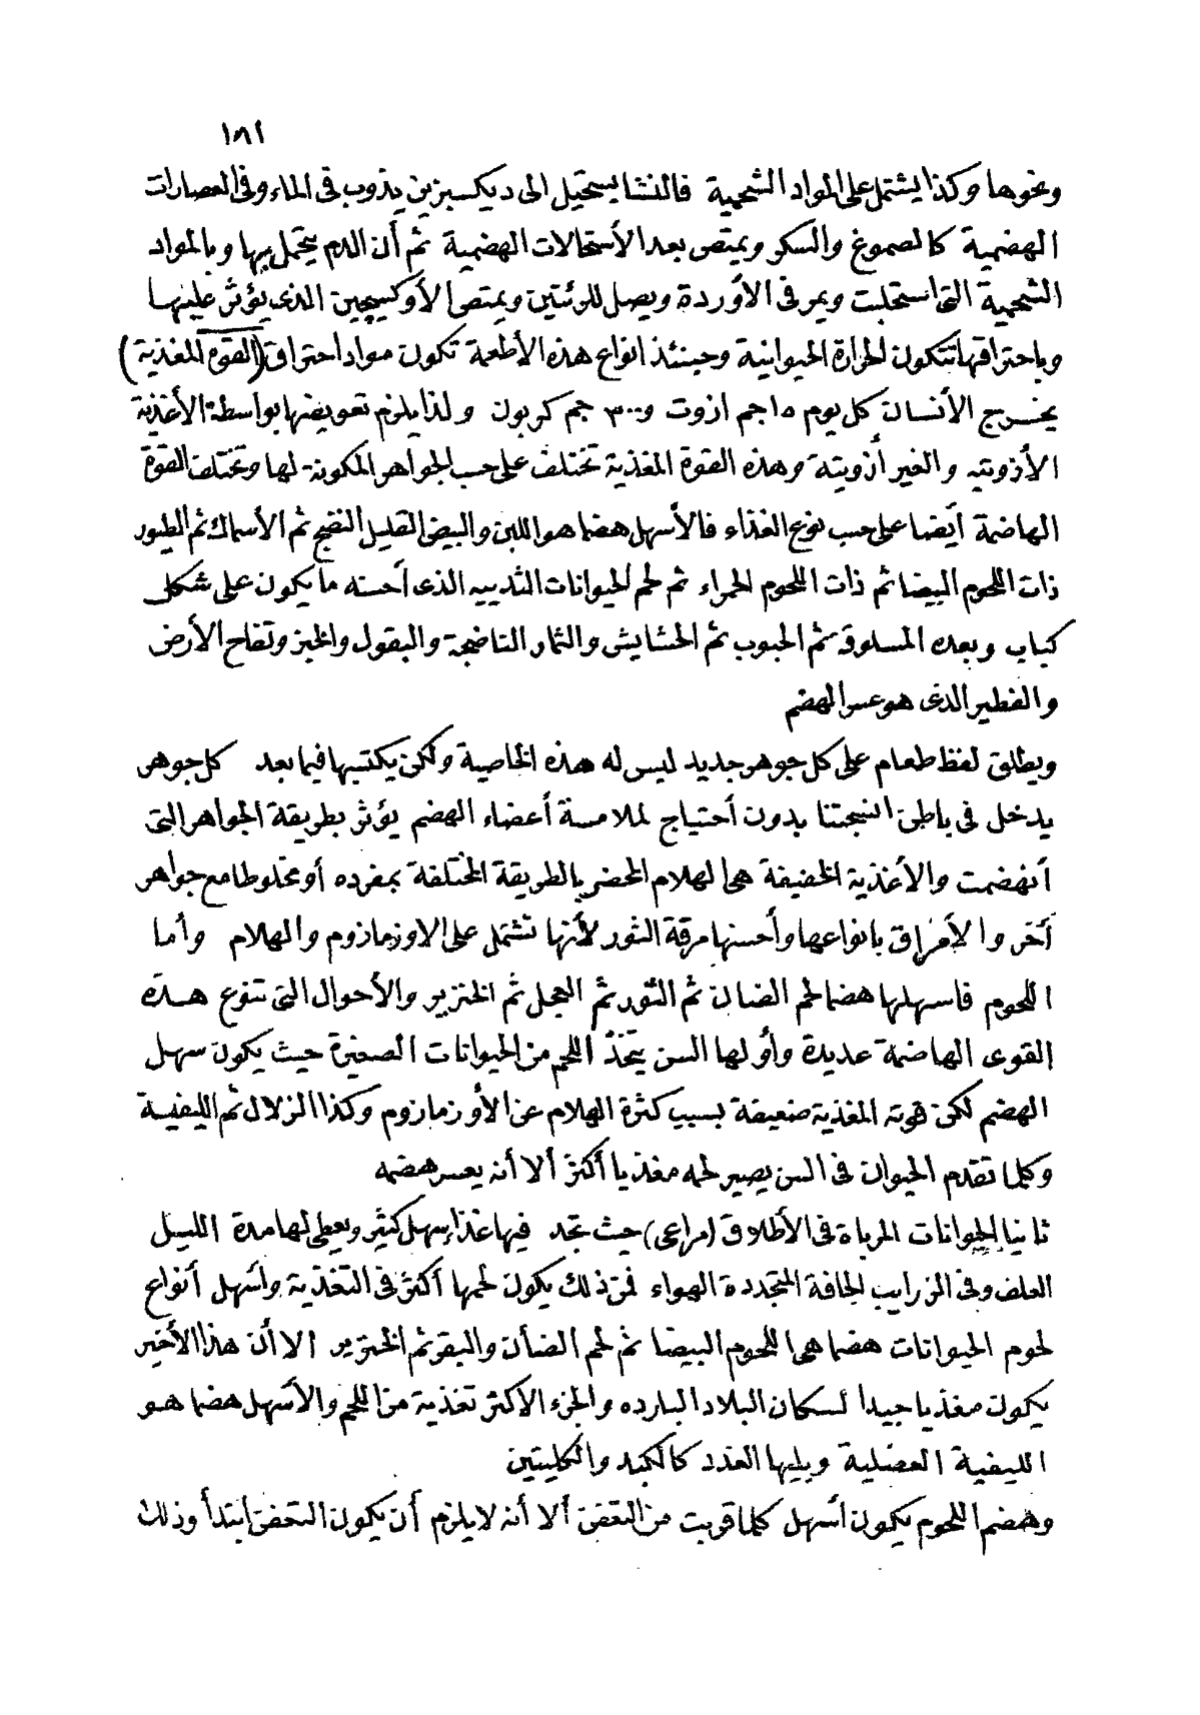 ١٨٢
ونحوها وكذا يشتمل على المواد الشحمية فالنشا يستحيل الى ديكسيزين يذوب فى الماء وفى العصارات
الهضمية كالصموغ والسكر ويمتص بعد الأستحالات الهضمية ثم أن الدم يتحمل بها وبالمواد
الشحمية التى استحلبت ويمر فى الأوردة ويصل للرئتين ويمتص الأوكسيچين الذى يؤثر عليها
وباحتراقها تتكون الحرارة الحيوانية وحينئذ انواع هذه الأطعمة تكون مواد احتراق (القوة المغذية)
يخرج الأنسان كل يوم ١٥ جم ازوت و ٣٠٠ جم كربون ولذا يلزم تعويضها بواسطة الأغذية
الأزوتيه والغير أزوتية وهذه القوة المغذية تختلف على حسب الجواهر المكونة لها وتختلف القوة
الهاضمة أيضا على حسب نوع الغذاء فالأسهل هضما هو اللبن والبيض القليل النضج ثم الأسماك ثم الطيور
ذات اللحوم البيضا ثم ذات اللحوم الحمراء ثم لحم الحيوانات الثدييه الذى أحسنه ما يكون على شكل
كباب وبعده المسلوق ثم الحبوب ثم الحشايش والثمار الناضجة والبقول والخبز وتفاح الأرض
والفطير الذى هو عسر الهضم
ويطلق لفظ طعام على كل جوهر جديد ليس له هذه الخاصية ولكن يكتسبها فيما بعد كل جوهر
يدخل فى باطن انسجتنا بدون أحتياج لملامسة أعضاء الهضم يؤثر بطريقة الجواهر التى
أنهضمت والأغذية الخفيفة هى الهلام المحضر بالطريقة المختلفة بمفرده أو مخلوطا مع جواهر
أخر والأمراق بانواعها وأحسنها مرقة الثور لأنها تشتمل على الاوزمازوم والهلام وأما
اللحوم فاسهلها هضما لحم الضان ثم الثور ثم العجل ثم الخنزير والأحوال التى تنوع هذه
القوى الهاضمة عديدة وأولها السن يتخذ اللحم من الحيوانات الصغيرة حيث يكون سهل
الهضم لكن قوته المغذية ضعيفة بسبب كثرة الهلام عن الأوزمازوم وكذا الزلال ثم الليفية
وكلما تقدم الحيوان فى السن يصير لحمه مغذيا أكثر ألا أنه يعسر هضمه
ثانيا الحيوانات المرباة فى الأطلاق (مراعى) حيث تجد فيها غذاء سهل كثير ويعطى لها مدة الليل
العلف وفى الزرايب الجافة المتجددة الهواء فمن ذلك يكون لحمها أكثر فى التغذية وأسهل أنواع
لحوم الحيوانات هضما هى اللحوم البيضا ثم لحم الضأن والبقر ثم الخنزير الا أن هذا الأخير
يكون مغذيا جيدا لسكان البلاد البارده والجزء الاكثر تغذية من اللحم والأسهل هضما هو
الليفية العضلية ويليها الغدد كالكبد والكليتين
وهضم اللحوم يكون أسهل كلما قربت من التعفن ألا أنه لا يلزم أن يكون التعفن أبتدأ وذلك